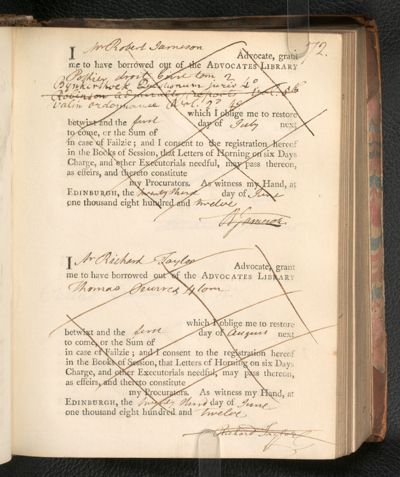 572.
I Mr Robert Jameson Advocate, grant
me to have borrowed out of the ADVOCATES LIBRARY
Pothier droit tom 2
Bynkershoek Questionum juris 4o
Robinson admiralty reports vol.
Valin ordonnance
which I oblige me to restore
betwixt and the first day of July next
to come, or the Sum of
in case of Failzie; and I consent to the registration hereof
in the Books of Session, that Letters of Horning on six Days
Charge, and other Executorials needful, may pass thereon,
as effeirs, and thereto constitute
my Procurators. As witness my Hand, at
EDINBURGH, the twenty third day of June
one thousand eight hundred and twelve
R Jameson
I Mr Richard Taylor Advocate, grant
me to have borrowed out of the ADVOCATES LIBRARY
Thomas 4 tom
which I oblige me to restore
betwixt and the first day of August next
to come, or the Sum of
in case of Failzie; and I consent to the registration hereof
in the Books of Session, that Letters of Horning on six Days
Charge, and other Executorials needful, may pass thereon,
as effeirs, and thereto constitute
my Procurators. As witness my Hand, at
EDINBURGH, the twenty third day of June
one thousand eight hundred and twelve
Richard Taylor